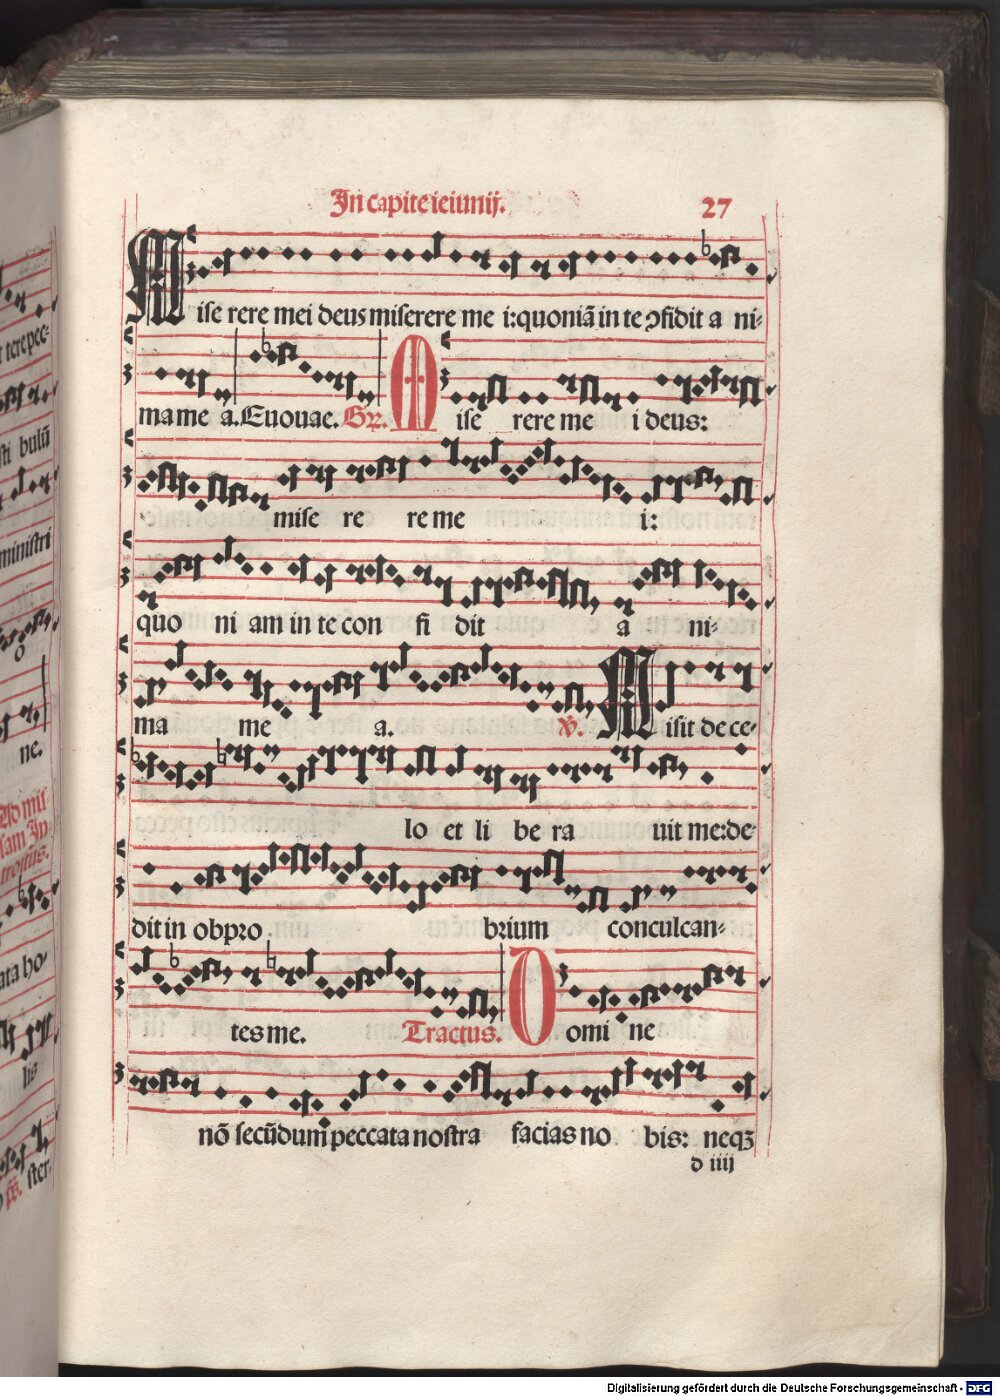 In capite ieiunij. 27
Mise rere mei deus miserere me i: quoniā in te ↄfidit a ni-
ma me a. Euouae. Gr. Mise rere me i deus:
mise re re me i:
quo ni am in te con fi dit a ni-
ma me a. ℣. Misit de ce-
lo et li be ra uit me: de-
dit in obpro brium conculcan-
tes me. Tractus. Domi ne
nō secūdum peccata nostra facias no bis: neqꝫ
d iiij
tere pec-
sti bulū
ministri
o
ne.
Ad mis
sam In
troitus.
ata ho-
lis
ster.
Digitalisierung gefördert durch die Deutsche Forschungsgemeinschaft - DFG